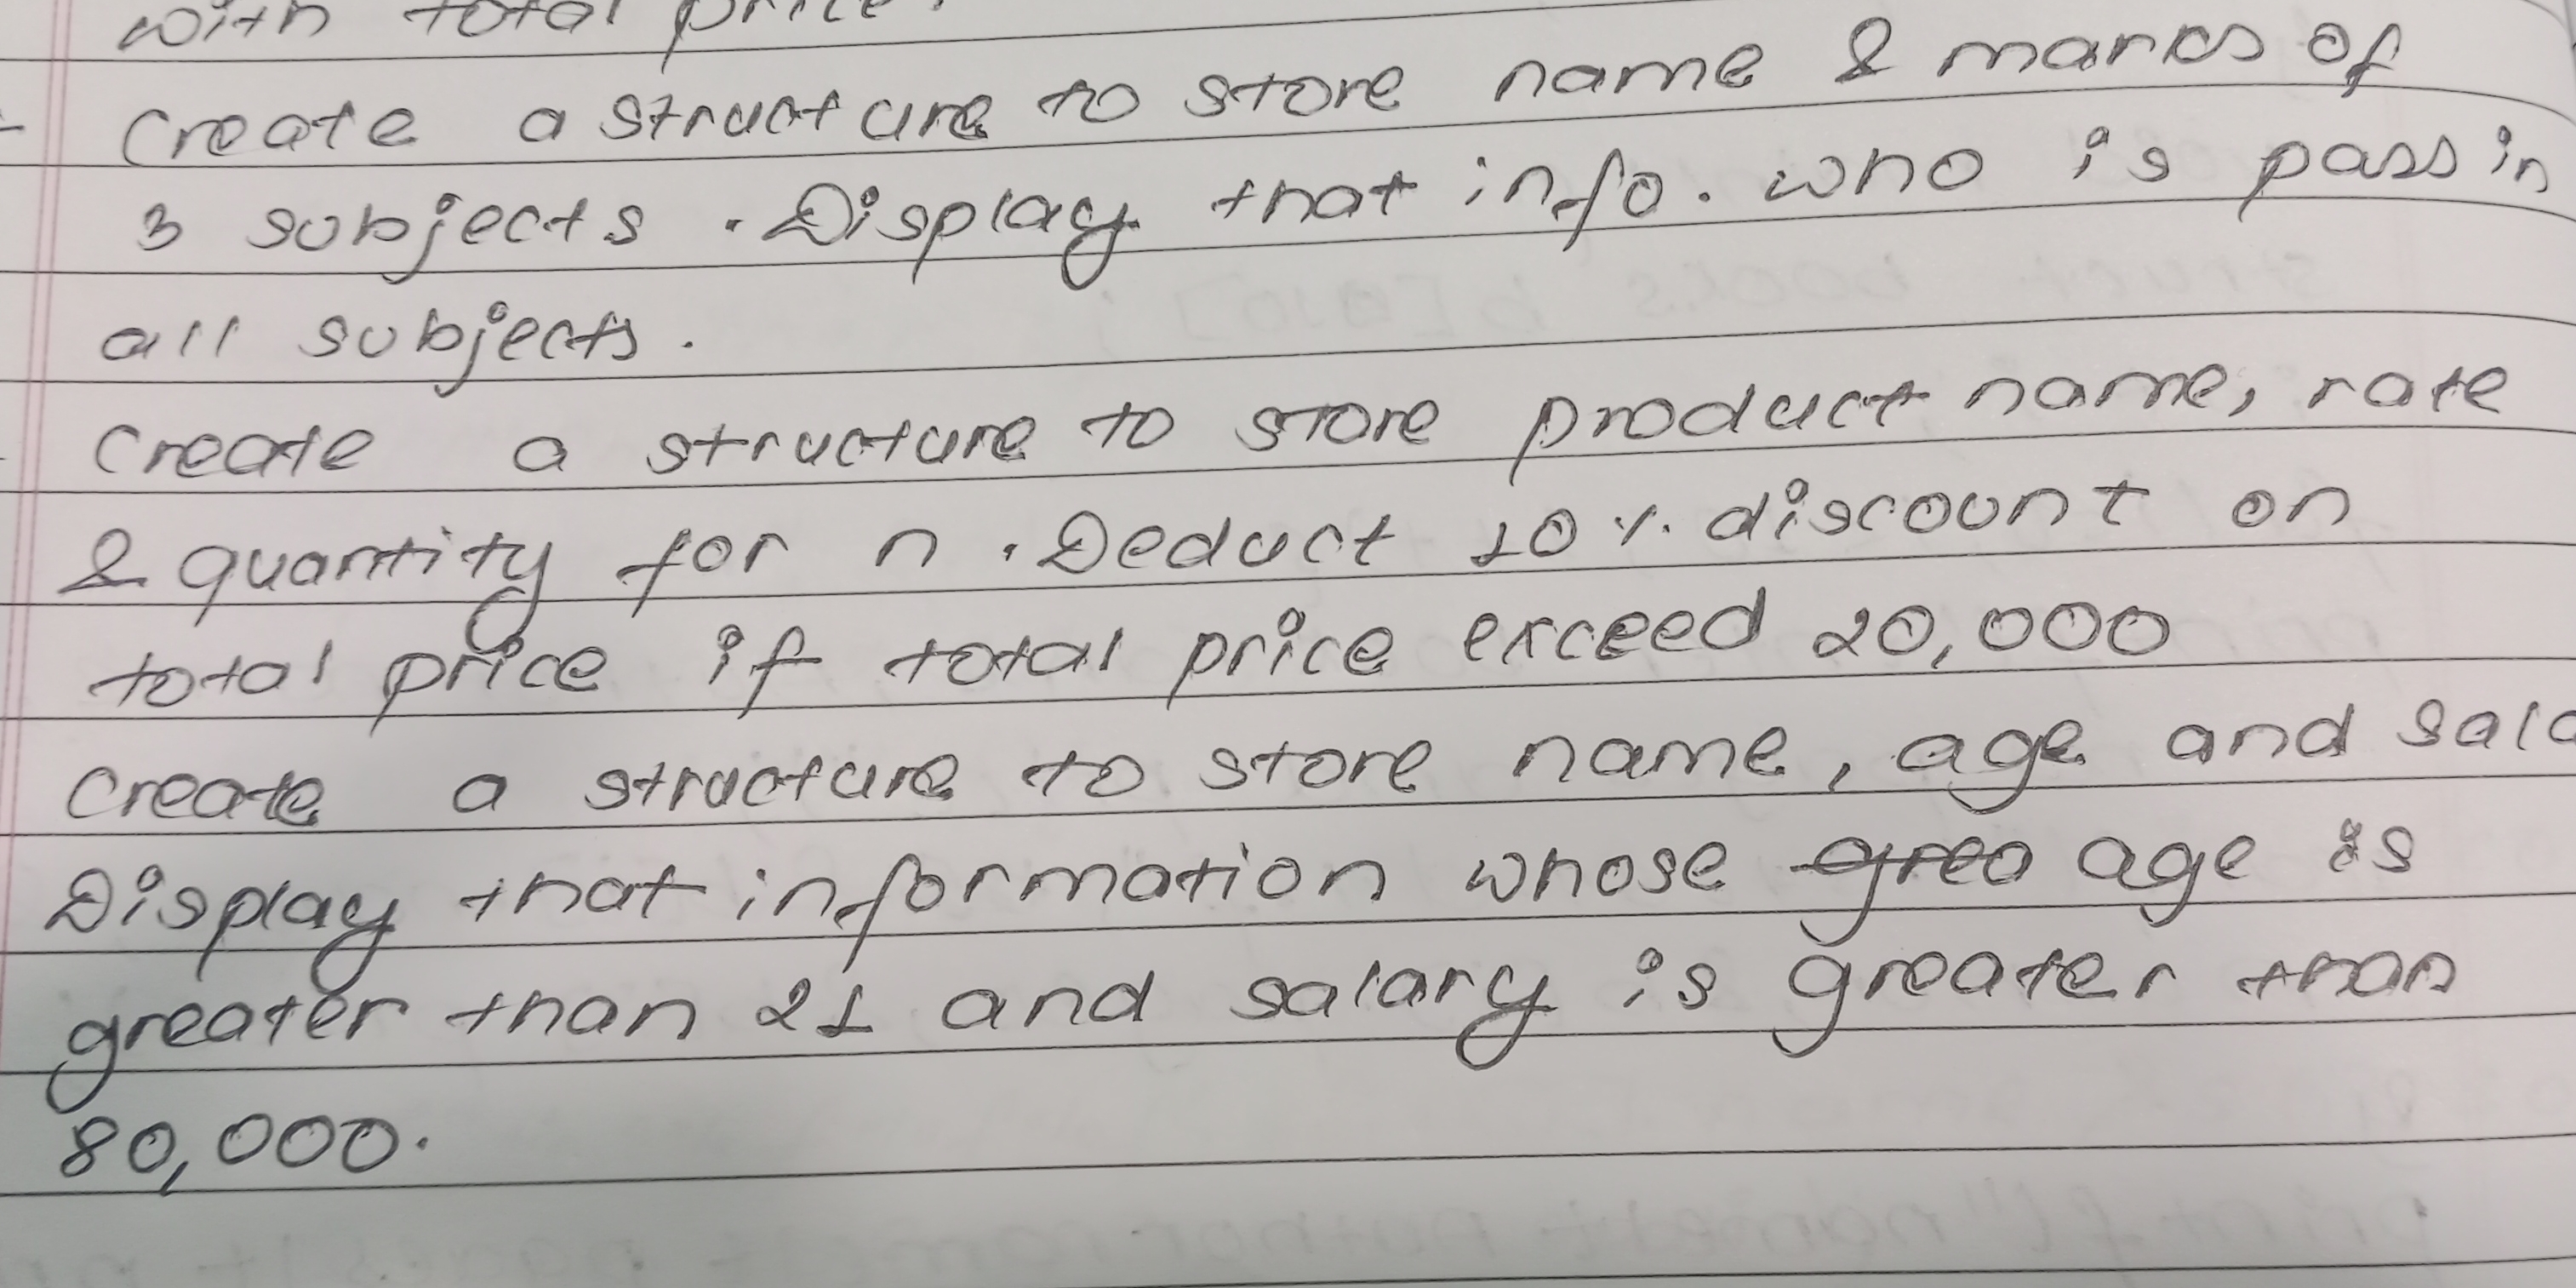 with total price.
create a structure to store name & marks of
3 subjects . Display that info. who is pass in
all subjects.
create a structure to store product name, rate
& quantity for n . Deduct 10 %. discount on
total price if total price exceed 20,000
create a structure to store name, age and sala
Display that information whose age is
greater than 21 and salary is greater than
80,000.